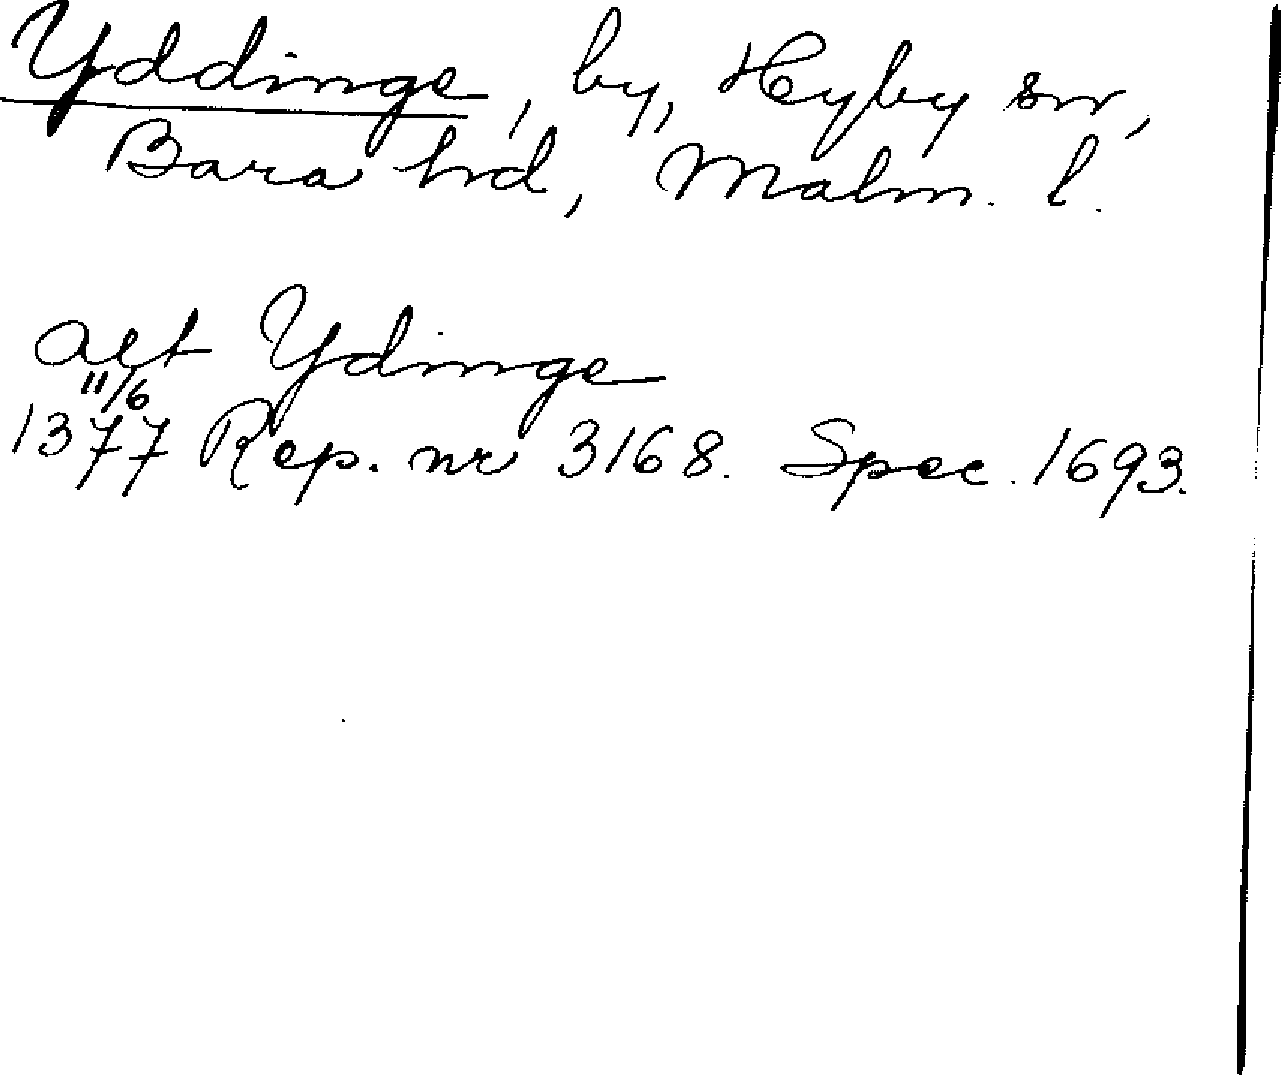 Yddinge, by, Hyby sn,
Bara hrd, Malm. l.
aff Ydinge
11/6
1377 Rep. nr 3168. Spec. 1693.